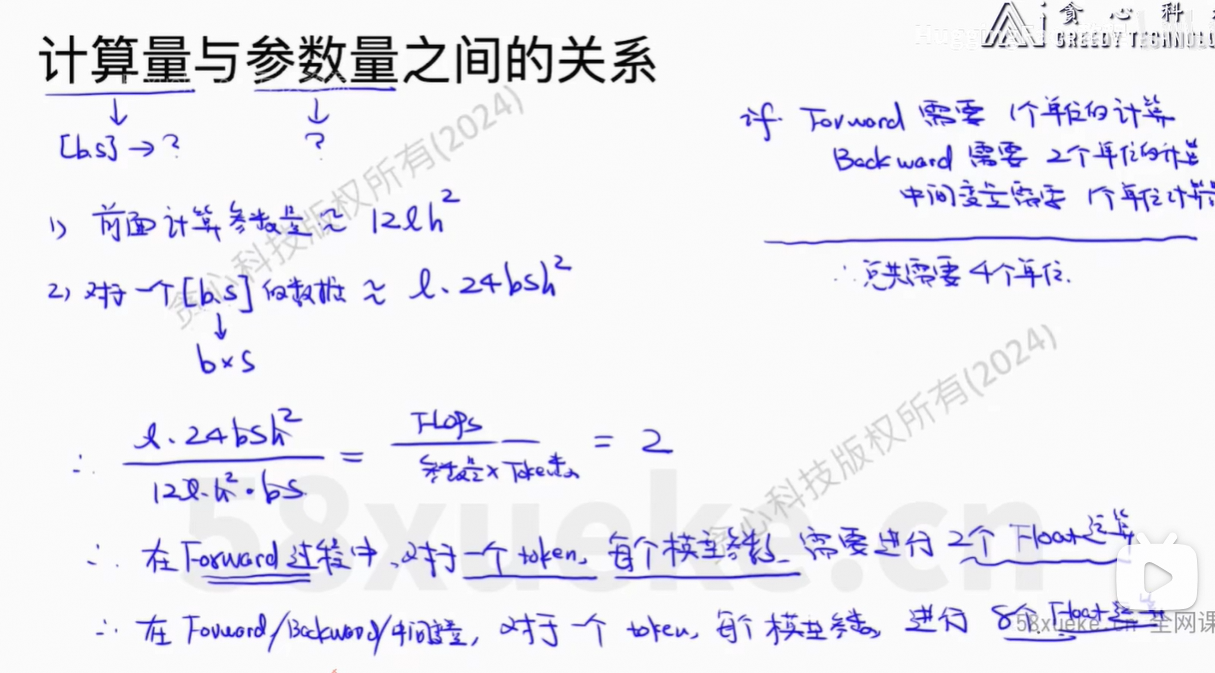 贪心科技
GREEDY TECHNOLO
计算量与参数量之间的关系
[b.s] → ?
?
if. Forward 需要 1个单位的计算
Backward 需要 2个单位的计算
中间变量需要 1个单位计算
∴ 总共需要 4个单位.
1) 前面计算参数量 ≈ 12lh²
2) 对于一个[b.s]的数据 ≈ l.24bsh²
b×s
∴ l.24bsh² / 12l.h².bs = Flops / 参数量×Token数 = 2
∴ 在Forward过程中,对于一个token, 每个模型参数, 需要进行2个Float运算
∴ 在Forward/Backward/中间变量, 对于一个token, 每个模型参数, 进行 8个Float运算
贪心科技版权所有(2024)
贪心科技版权所有(2024)
58xueke.cn
58xueke.cn 全网课